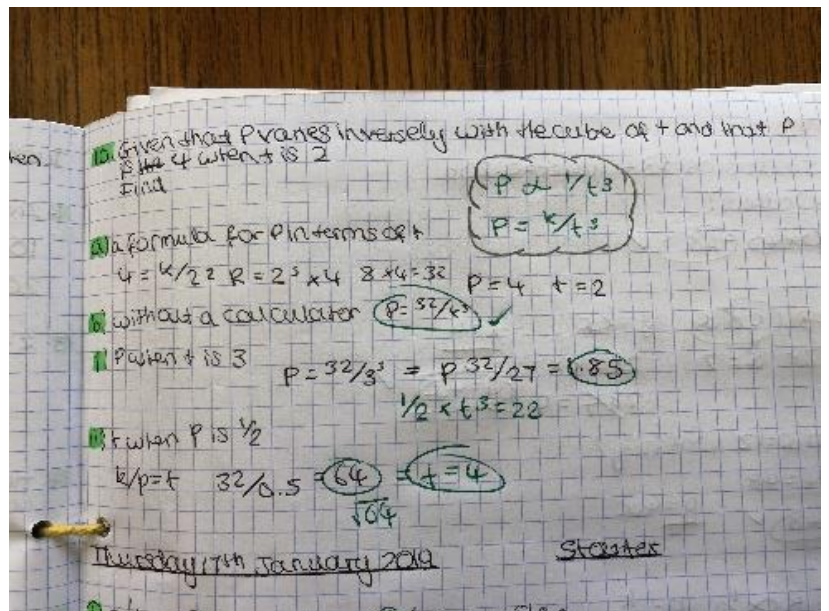 Given that P varies inversely with the cube of t and that P
is 4 when t is 2
Find
P ∝ 1/t3
P = k/t3
a) a formula for P in terms of t
4 = k/22 R = 2³ x4 8x4=32 P=4 t=2
b) without a calculator P=32/t³ ✓
i) P when t is 3
P = 32/3³ = P 32/27 = .85
1/2 x t3 = 22
t when P is 1/2
k/p=t 32/0.5 = 64 = t=4
√64
Thursday 17th January 2019 Starter